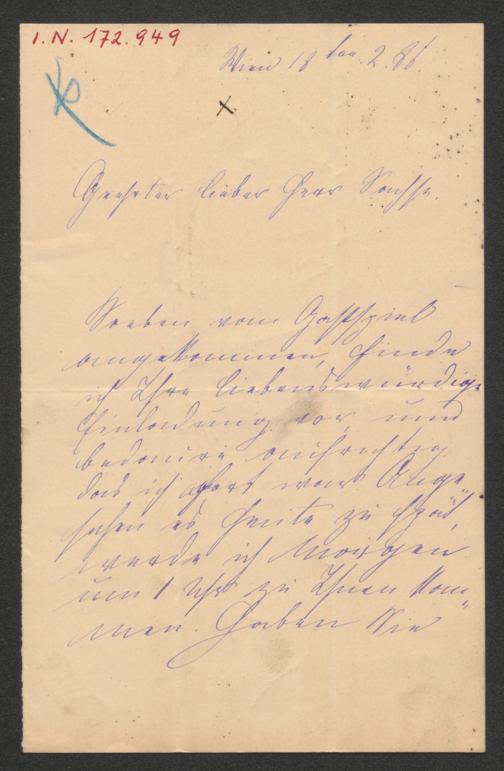 I. N. 172.949
Wien 18 ten 2. 86
X
Geehrter lieber Herr Sachse.
Soeben vom Gastspiel
angekommen, finde
ich Ihre liebenswürdige
Einladung vor, und
bedaure aufrichtig,
das ich fort war. Ange-
sehen es heute zu spät,
werde ich Morgen
um 1 Uhr zu Ihnen kom-
men. Haben Sie